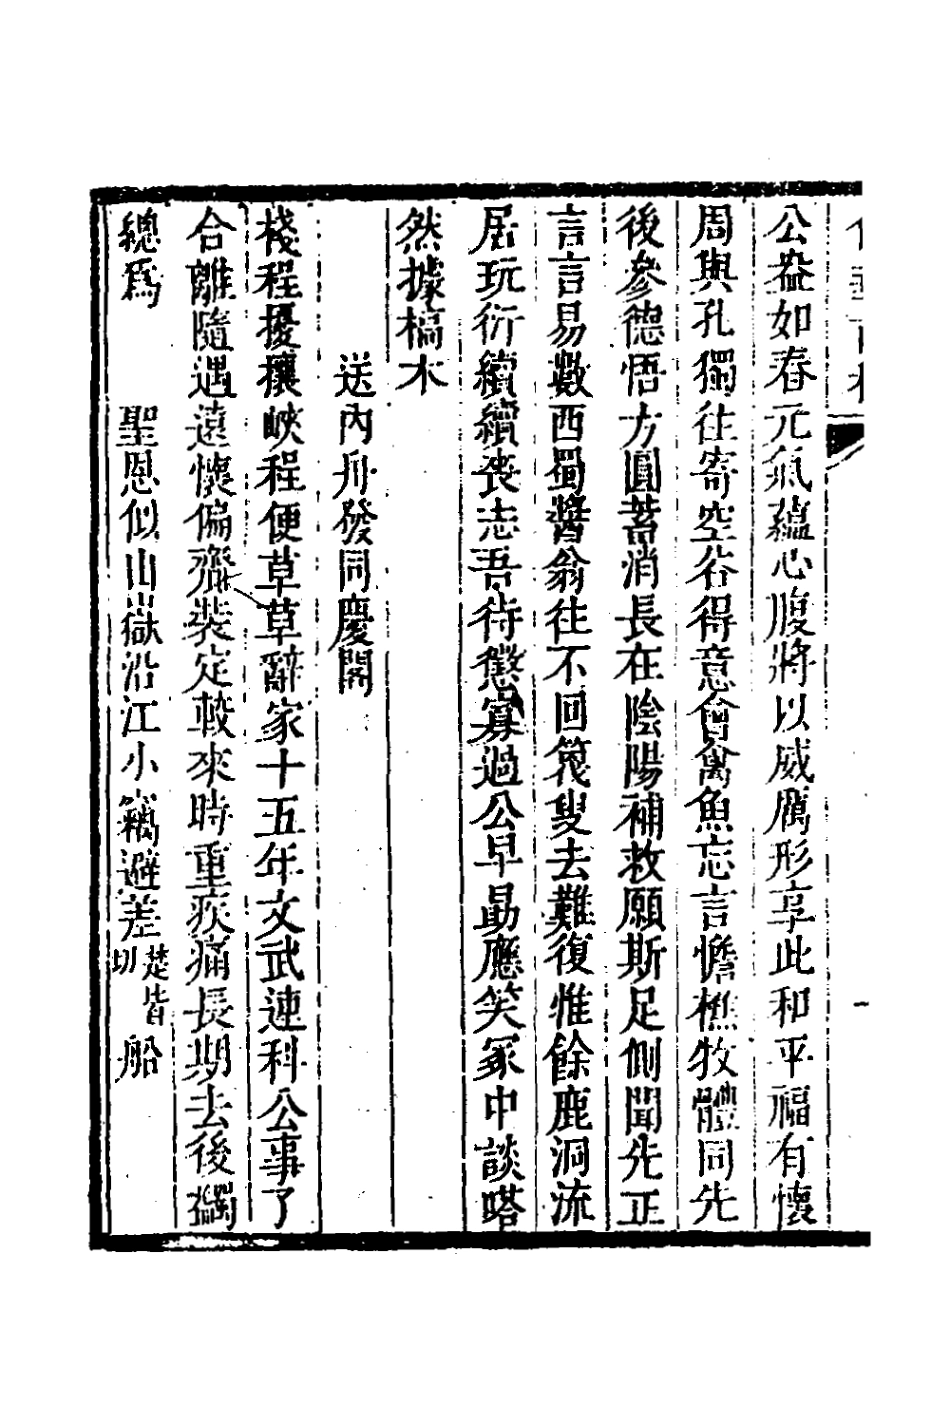 公盎如春元氣蘊心腹將以威厲形享此和平福有懷
周與孔獨往寄空谷得意會禽魚忘言憺樵牧體同先
後參德悟方圓蓄消長在陰陽補救願斯足側聞先正
言言易數西蜀醬翁往不回篾叟去難復惟餘鹿洞流
居玩衍續續喪志吾待懲寡過公早勗應笑冢中談嗒
然據槁木
送內舟發同慶閣
棧程擾攘峽程便草草辭家十五年文武連科公事了
合離隨遇遠懷偏齊裝定較來時重疾痛長期去後蠲
總爲 聖恩似山嶽沿江小竊避差船
楚皆
切